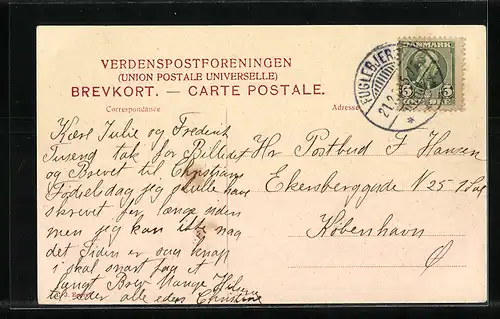 VERDENSPOSTFORENINGEN
(UNION POSTALE UNIVERSELLE)
BREVKORT. — CARTE POSTALE.
Correspondance
Adresse
DANMARK
5 5
FUGLEBJERG
21.2
Kære Julie og Frederik
Tusend tak for Billedet
og Brevet til Christians
Fødselsdag jeg skulle have
skrevet for længe siden
men jeg kan ikke nag
det Tiden er saa knap
i skal snart faa et
Langt Brev Mange Hilsner
til eder alle eders Christine
Hr Postbud F Hansen
Ekersberggade N 25 1 Sal
København
Ø